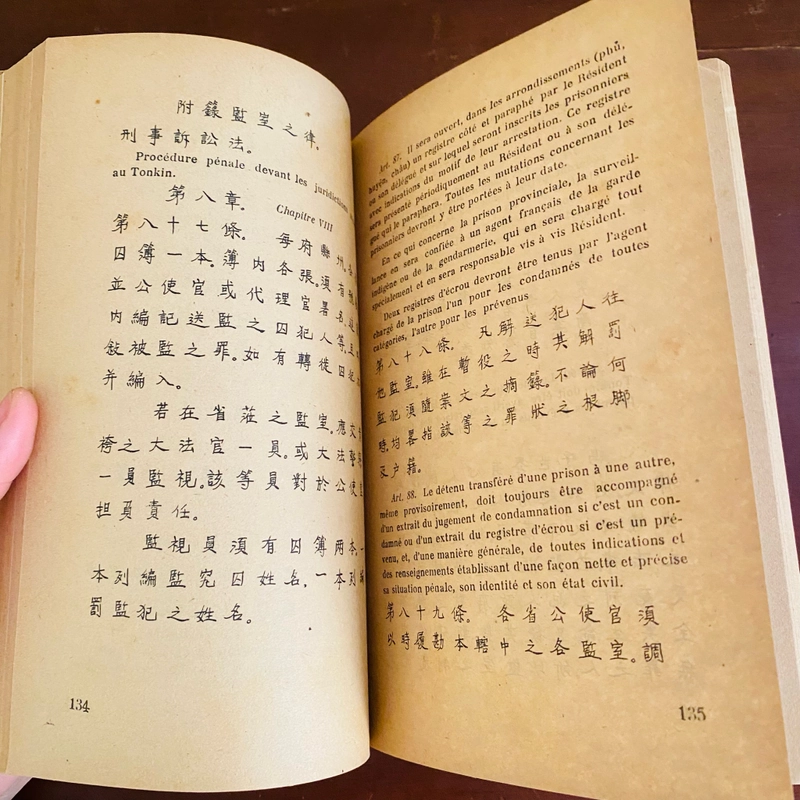 附錄監室之律
刑事訴訟法。
Procédure pénale devant les juridictions
au Tonkin.
第八章。
Chapitre VIII
第八十七條。 每府縣州。
囚簿一本。簿內各張。須有
並公使官或代理官署名。
內編記送監之囚犯人等。
敍被監之罪。如有轉徙囚
并編入。
若在省莊之監室。應交
袴之大法官一員。或大法
一員監視。該等員對於公使
担員責任。
監視員須有囚簿兩本。一
本列編監究囚姓名。一本列編
罰監犯之姓名。
134
Art. 87. Il sera ouvert, dans les arrondissements (phủ,
huyện, châu) un registre côté et paraphé par le Résident
ou son délégué et sur lequel seront inscrits les prisonniers
avec indications du motif de leur arrestation. Ce registre
sera présenté périodiquement au Résident ou à son délé-
gué qui le paraphera. Toutes les mutations concernant les
prisonniers devront y être portées à leur date.
En ce qui concerne la prison provinciale, la surveil-
lance en sera confiée à un agent français de la garde
indigène ou de la gendarmerie, qui en sera chargé tout
spécialement et en sera responsable vis à vis Résident.
Deux registres d'écrou devront être tenus par l'agent
chargé de la prison l'un pour les condamnés de toutes
catégories, l'autre pour les prévenus
第八十八條。 凡解送犯人往
他監室。雖在暫役之時其解罰
監犯須隨案文之摘錄。不論何
時。均畧指該等之罪狀之根脚
及户籍。
Art. 88. Le détenu transféré d'une prison à une autre,
même provisoirement, doit toujours être accompagné
d'un extrait du jugement de condamnation si c'est un con-
damné ou d'un extrait du registre d'écrou si c'est un pré-
venu, et, d'une manière générale, de toutes indications et
des renseignements établissant d'une façon nette et précise
sa situation pénale, son identité et son état civil.
第八十九條。 各省公使官須
以時履勘本轄中之各監室。調
135